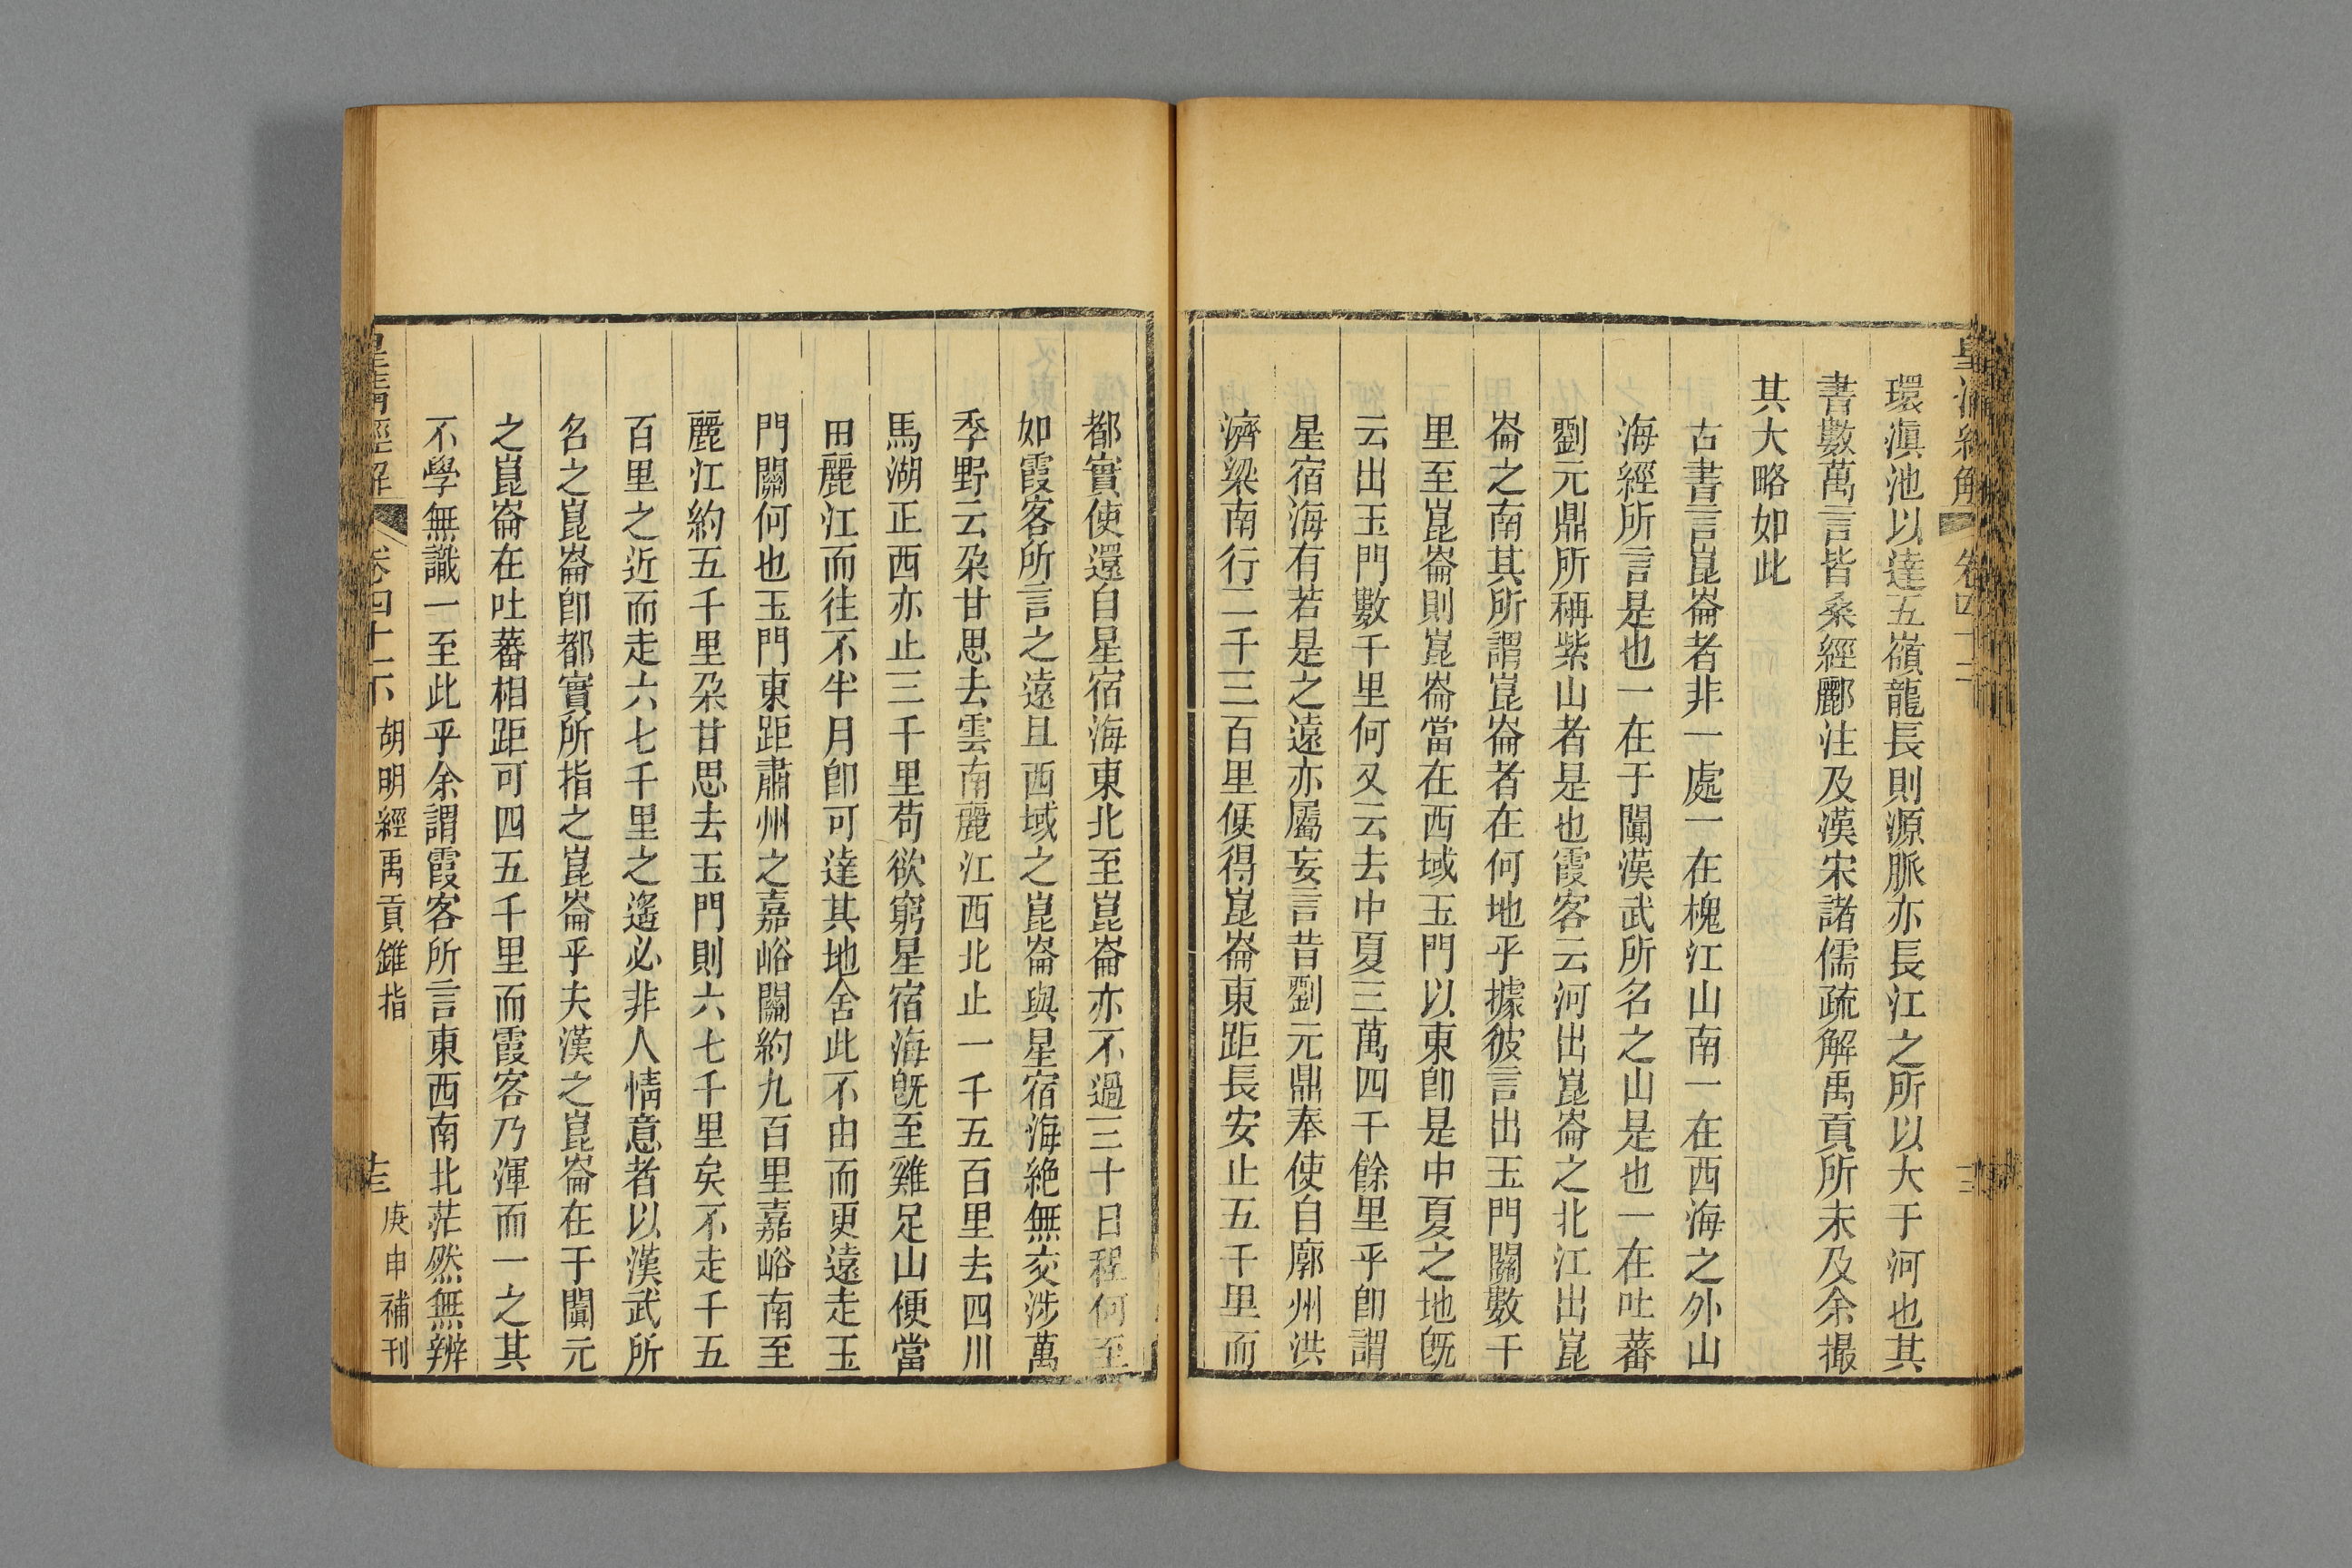 皇清經解
卷四十二
環滇池以達五嶺龍長則源脈亦長江之所以大于河也其
書數萬言皆桑經酈注及漢宋諸儒疏解禹貢所未及余撮
其大略如此
古書言崑崙者非一處一在槐江山南一在西海之外山
海經所言是也一在于闐漢武所名之山是也一在吐蕃
劉元鼎所稱紫山者是也霞客云河出崑崙之北江出崑
崙之南其所謂崑崙者在何地乎據彼言出玉門關數千
里至崑崙則崑崙當在西域玉門以東卽是中夏之地旣
云出玉門數千里何又云去中夏三萬四千餘里乎卽謂
星宿海有若是之遠亦屬妄言昔劉元鼎奉使自廓州洪
濟梁南行二千三百里便得崑崙東距長安止五千里而
都實使還自星宿海東北至崑崙亦不過三十日程何至
如霞客所言之遠且西域之崑崙與星宿海絶無交涉萬
季野云朶甘思去雲南麗江西北止一千五百里去四川
馬湖正西亦止三千里苟欲窮星宿海旣至雞足山便當
由麗江而往不半月卽可達其地舍此不由而更遠走玉
門關何也玉門東距肅州之嘉峪關約九百里嘉峪南至
麗江約五千里朶甘思去玉門則六七千里矣不走千五
百里之近而走六七千里之遙必非人情意者以漢武所
名之崑崙卽都實所指之崑崙乎夫漢之崑崙在于闐元
之崑崙在吐蕃相距可四五千里而霞客乃渾而一之其
不學無識一至此乎余謂霞客所言東西南北茫然無辨
皇清經解
卷四十二下
胡明經禹貢錐指
庚申補刊